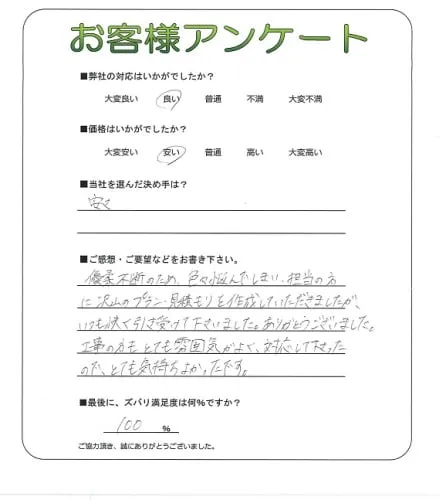 お客様アンケート
■弊社の対応はいかがでしたか？
大変良い 良い 普通 不満 大変不満
■価格はいかがでしたか？
大変安い 安い 普通 高い 大変高い
■当社を選んだ決め手は？
安さ
■ご感想・ご要望などをお書き下さい。
優柔不断のため、色々悩んでしまい、担当の方
に沢山のプラン・見積もりを作成していただきましたが、
いつも快く引き受けて下さいました。ありがとうございました。
工事の方も とても雰囲気がよく、対応して下さった
ので、とても気持ちよかったです。
■最後に、ズバリ満足度は何％ですか？
100 ％
ご協力頂き、誠にありがとうございました。